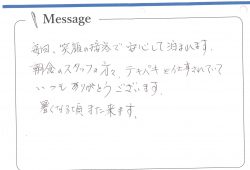 Message
毎回、笑顔の接客で安心して泊まれます。
朝食のスタッフの方々、テキパキと仕事されていて
いつもありがとうございます。
暑くなる頃また来ます。